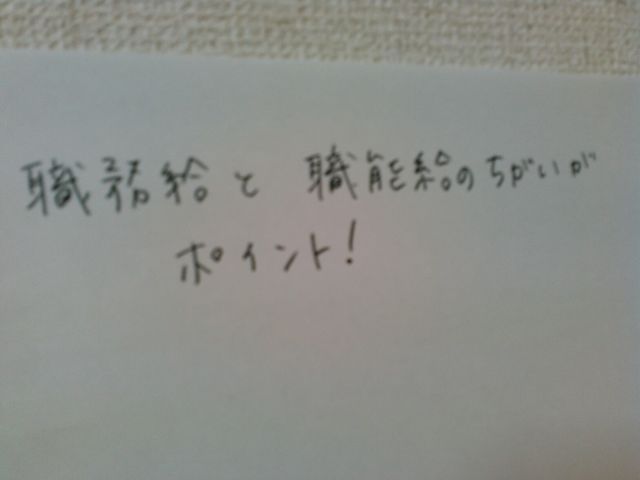 職務給と 職能給のちがいが
ポイント!